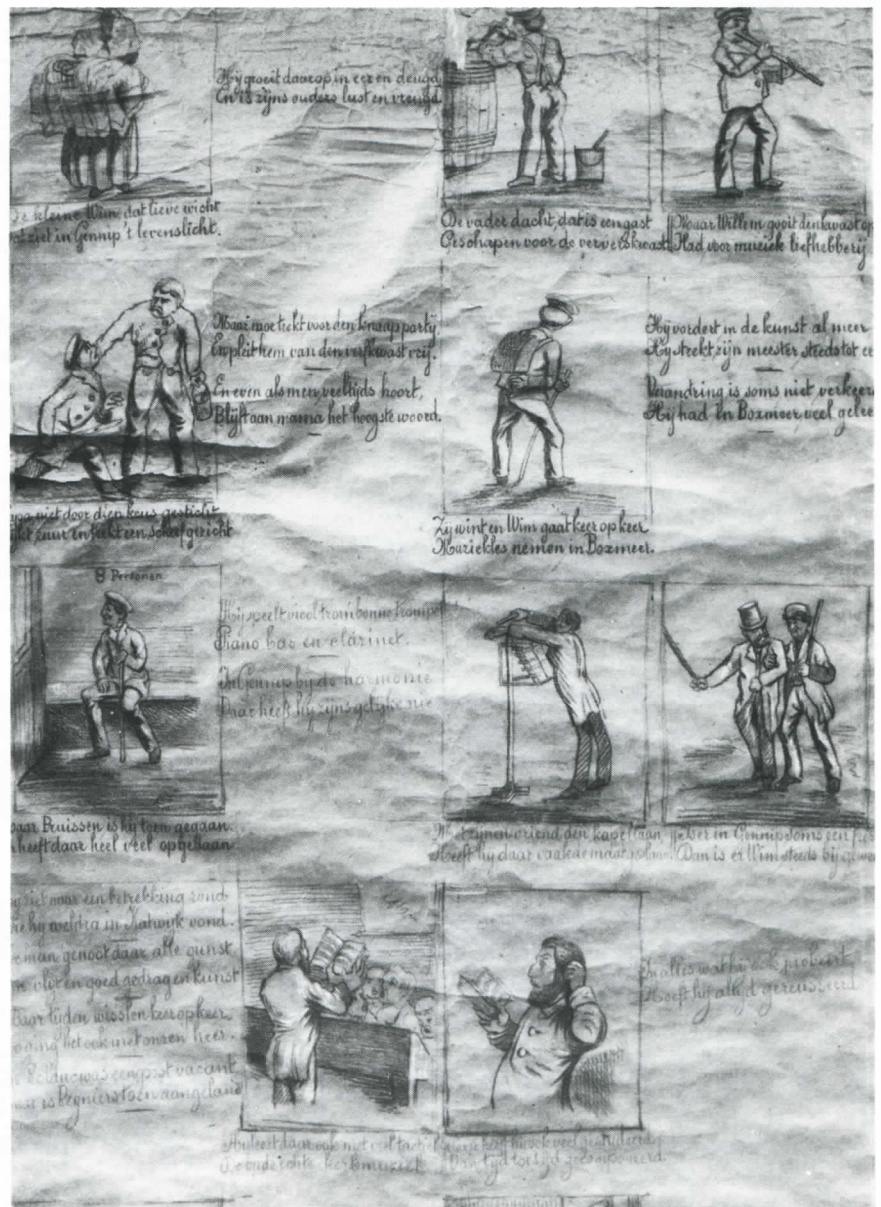 Hij groeit daarop in eer en deugd
En is zijns ouders lust en vreugd
De kleine Wim, dat lieve wicht
at ziet in Gennip 't levenslicht.
De vader dacht, dat is een gast
Geschapen voor de ververskwast
Maar Willem gooit den kwast op
Had voor muziek liefhebberij
Maar moe trekt voor den knaap partij
En pleit hem van den verfkwast vrij.
En even als men veeltijds hoort,
Blijft aan mama het hoogste woord.
niet door dien keus gesticht
zuur en trekt een scheef gezicht
Zij wint en Wim gaat keer op keer
Muziekles nemen in Boxmeer.
Hij vordert in de kunst al meer
Hij strekt zijn meester steeds tot ee
Verandring is soms niet verkeer
Hij had in Boxmeer veel gelee
8 Personen
Hij speelt viool trombonne trompet
Piano bas en clarinet.
In Gennip bij de harmonie
Daar heeft hij zijns gelijke nie
aar Pruissen is hij toen gegaan.
heeft daar heel veel opgedaan
Met zijnen vriend den kapellaan
Heeft hij daar vaak de maat
Is er in Gennip soms een
Dan is er Wim steeds bij
ziet naar een betrekking rond
hij weldra in Katwijk vond.
man genoot daar alle gunst
vlijt en goed gedrag en kunst
aar tijden wisslen keer op keer
ging het ook met onzen heer.
Rolduc was een post vacant
is Regniers toen aangeland
daar ook met veel
oude echte kerkmuziek
heeft hij ook veel gestudeerd
Van tijd tot tijd gecomponeerd
In alles wat hij ook probeert
Heeft hij altijd gereusseerd